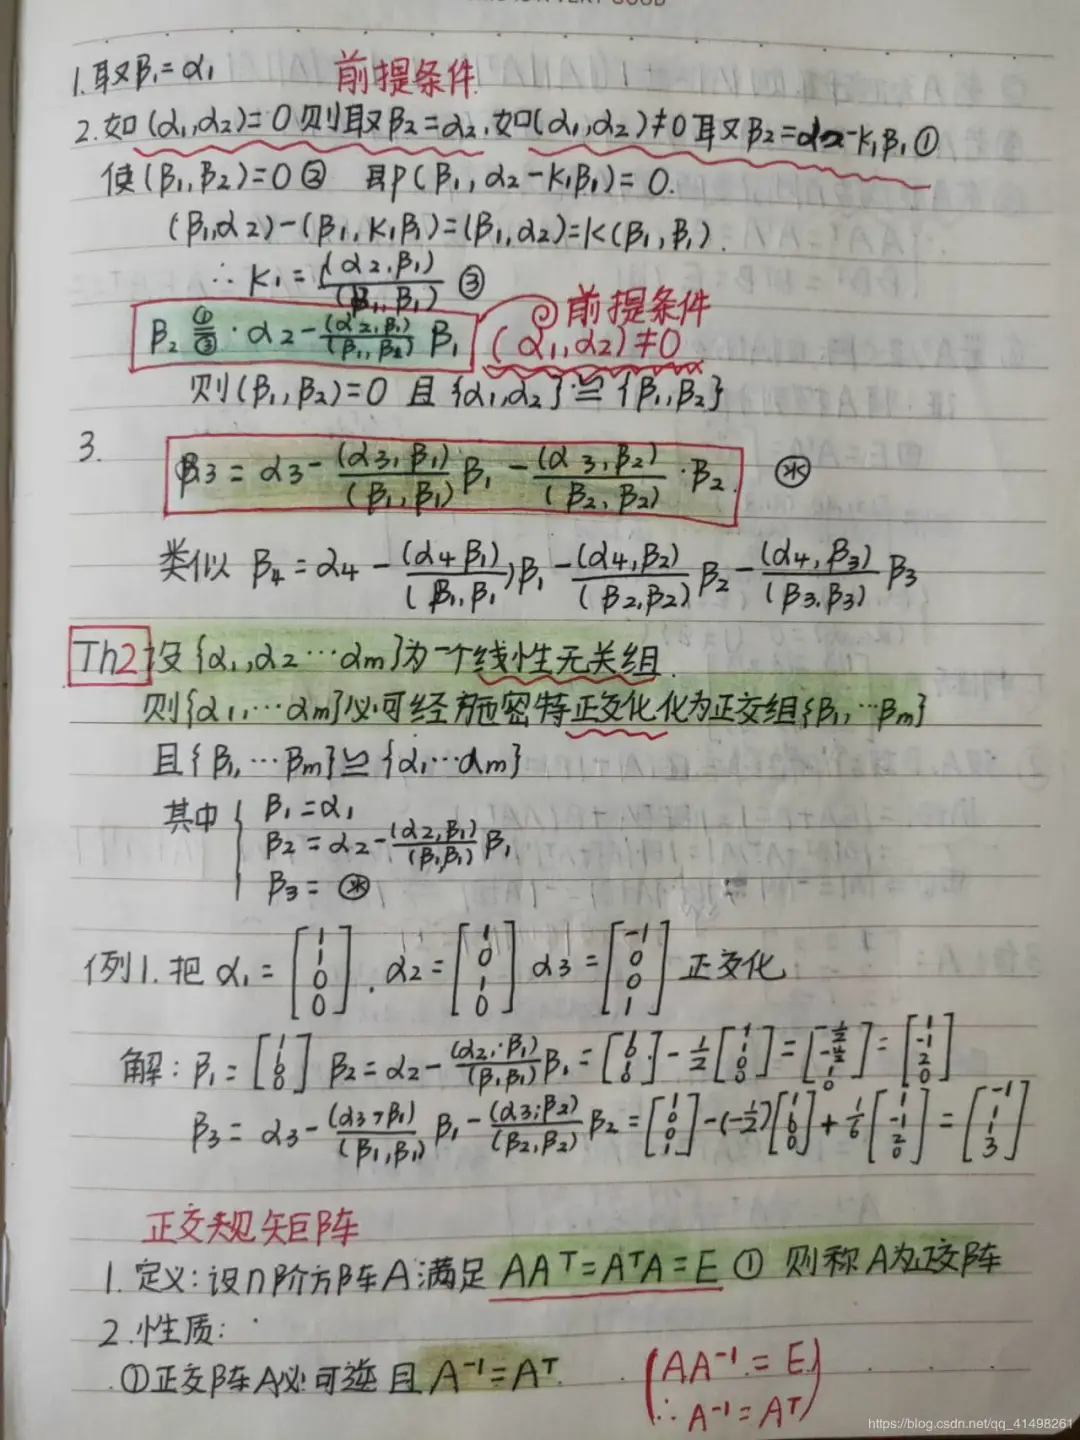 1.取β₁=α₁ 前提条件
2.如(α₁,α₂)=0则取β₂=α₂.如(α₁,α₂)≠0取β₂=α₂-k₁β₁①
使(β₁,β₂)=0② 即(β₁,α₂-k₁β₁)=0.
(β₁,α₂)-(β₁,k₁β₁)=(β₁,α₂)=k(β₁,β₁).
∴k₁=(α₂,β₁)/(β₁,β₁) ③
前提条件
β₂ ①=③ ·α₂-(α₂,β₁)/(β₁,β₂) β₁ (α₁,α₂)≠0
则(β₁,β₂)=0 且{α₁,α₂}≌{β₁,β₂}
3. β₃=α₃-(α₃,β₁)/(β₁,β₁) β₁-(α₃,β₂)/(β₂,β₂)·β₂. ㊍
类似 β₄=α₄-(α₄β₁)/(β₁,β₁) β₁-(α₄,β₂)/(β₂,β₂) β₂-(α₄,β₃)/(β₃,β₃) β₃
Th2 设{α₁,α₂…αm}为一个线性无关组.
则{α₁,…αm}必可经施密特正交化化为正交组{β₁,…βm}
且{β₁,…βm}≌{α₁…αm}
其中 { β₁=α₁
β₂=α₂-(α₂,β₁)/(β₁β₁) β₁
β₃=㊍
例1.把α₁=[1 1 0 0],α₂=[1 0 1 0] α₃=[-1 0 0 1] 正交化
解:β₁= β₂=α₂-(α₂,β₁)/(β₁,β₁) β₁= -1/2 = =[1 -1 2 0]
β₃=α₃-(α₃,β₁)/(β₁,β₁) β₁-(α₃,β₂)/(β₂,β₂) β₂= -(-1/2) +1/6[1 -1 2 0]=[-1 1 1 3]
正交规矩阵
1.定义:设n阶方阵A满足AAᵀ=AᵀA=E① 则称A为正交阵
2.性质:
①正交阵A必可逆且A⁻¹=Aᵀ. (AA⁻¹=E
∴A⁻¹=Aᵀ)
https://blog.csdn.net/qq_41498261